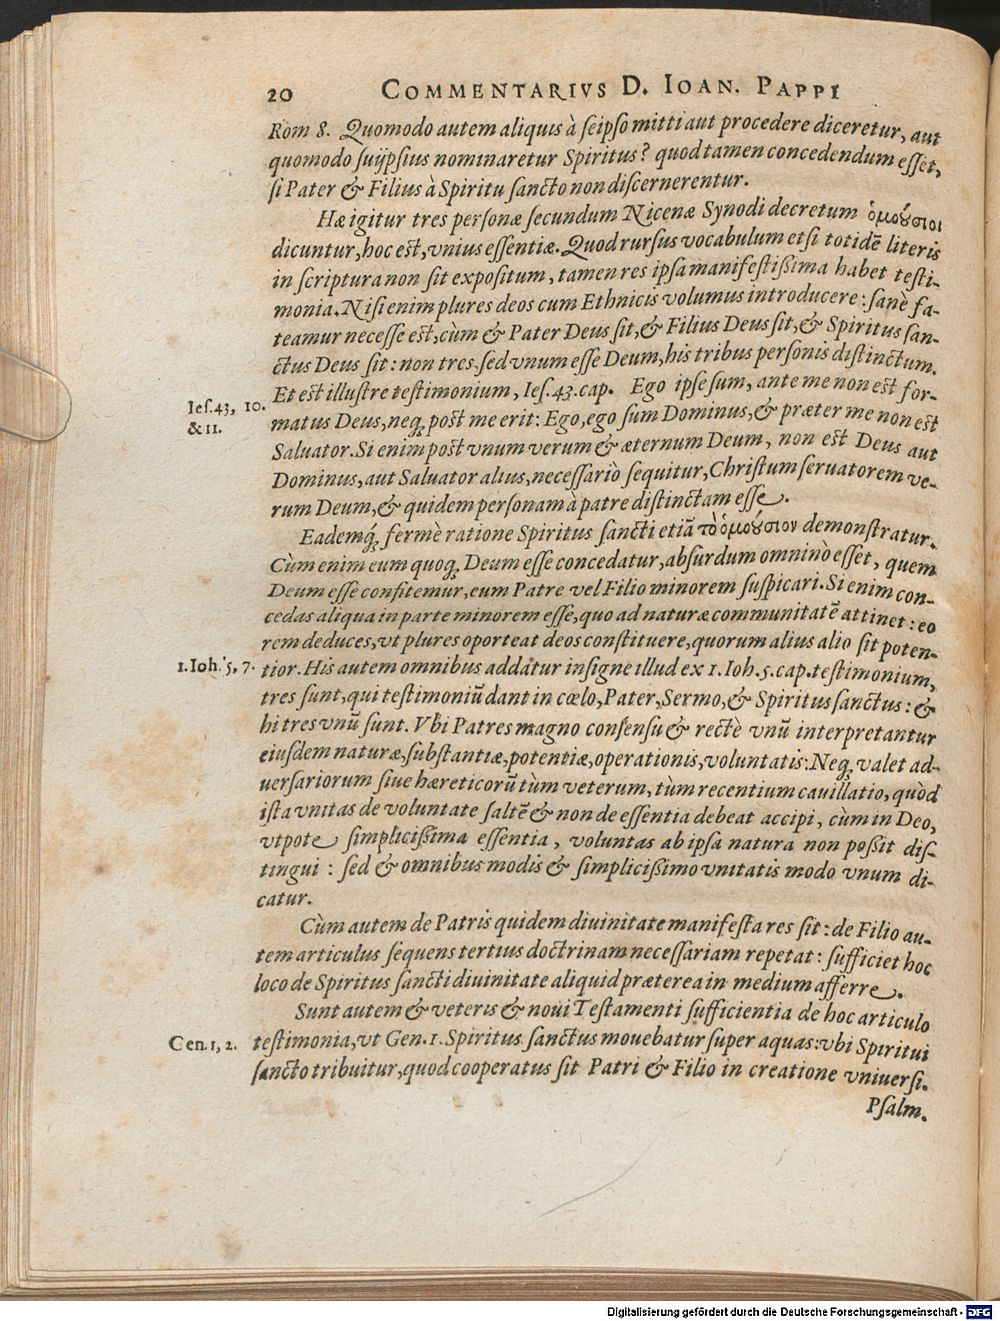 20 COMMENTARIVS D. IOAN. PAPPI
Rom 8. Quomodo autem aliquis à seipso mitti aut procedere diceretur, aut
quomodo suijpsius nominaretur Spiritus? quod tamen concedendum esset,
si Pater & Filius à Spiritu sancto non discernerentur.
Hæ igitur tres personæ secundum Nicenæ Synodi decretum ὁμοούσιοι
dicuntur, hoc est, vnius essentiæ. Quod rursus vocabulum etsi totidē literis
in scriptura non sit expositum, tamen res ipsa manifestißima habet testi-
monia. Nisi enim plures deos cum Ethnicis volumus introducere: sanè fa-
teamur necesse est, cùm & Pater Deus sit, & Filius Deus sit, & Spiritus san-
ctus Deus sit: non tres, sed vnum esse Deum, his tribus personis distinctum.
Et est illustre testimonium, Ies. 43. cap. Ego ipse sum, ante me non est for-
Ies. 43, 10.
& 11.
matus Deus, neq; post me erit: Ego, ego sum Dominus, & præter me non est
Saluator. Si enim post vnum verum & æternum Deum, non est Deus aut
Dominus, aut Saluator alius, necessariò sequitur, Christum seruatorem ve-
rum Deum, & quidem personam à patre distinctam esse.
Eademq́; fermè ratione Spiritus sancti etiā τὸ ὁμοούσιον demonstratur.
Cùm enim eum quoq; Deum esse concedatur, absurdum omninò esset, quem
Deum esse confitemur, eum Patre vel Filio minorem suspicari. Si enim con-
cedas aliqua in parte minorem esse, quo ad naturæ communitatē attinet: eo
rem deduces, vt plures oporteat deos constituere, quorum alius alio sit poten-
1. Ioh. 5, 7.
tior. His autem omnibus addatur insigne illud ex 1. Ioh. 5. cap. testimonium,
tres sunt, qui testimoniū dant in cœlo, Pater, Sermo, & Spiritus sanctus: &
hi tres vnū sunt. Vbi Patres magno consensu & rectè vnū interpretantur
eiusdem naturæ, substantiæ, potentiæ, operationis, voluntatis: Neq; valet ad-
uersariorum siue hæreticorū tùm veterum, tùm recentium cauillatio, quòd
ista vnitas de voluntate saltē & non de essentia debeat accipi, cùm in Deo,
vtpote simplicißima essentia, voluntas ab ipsa natura non poßit dis-
tingui: sed & omnibus modis & simplicißimo vnitatis modo vnum di-
catur.
Cùm autem de Patris quidem diuinitate manifesta res sit: de Filio au-
tem articulus sequens tertius doctrinam necessariam repetat: sufficiet hoc
loco de Spiritus sancti diuinitate aliquid præterea in medium afferre.
Sunt autem & veteris & noui Testamenti sufficientia de hoc articulo
Gen. 1, 2.
testimonia, vt Gen. 1. Spiritus sanctus mouebatur super aquas: vbi Spiritui
sancto tribuitur, quod cooperatus sit Patri & Filio in creatione vniuersi.
Psalm.
Digitalisierung gefördert durch die Deutsche Forschungsgemeinschaft - DFG